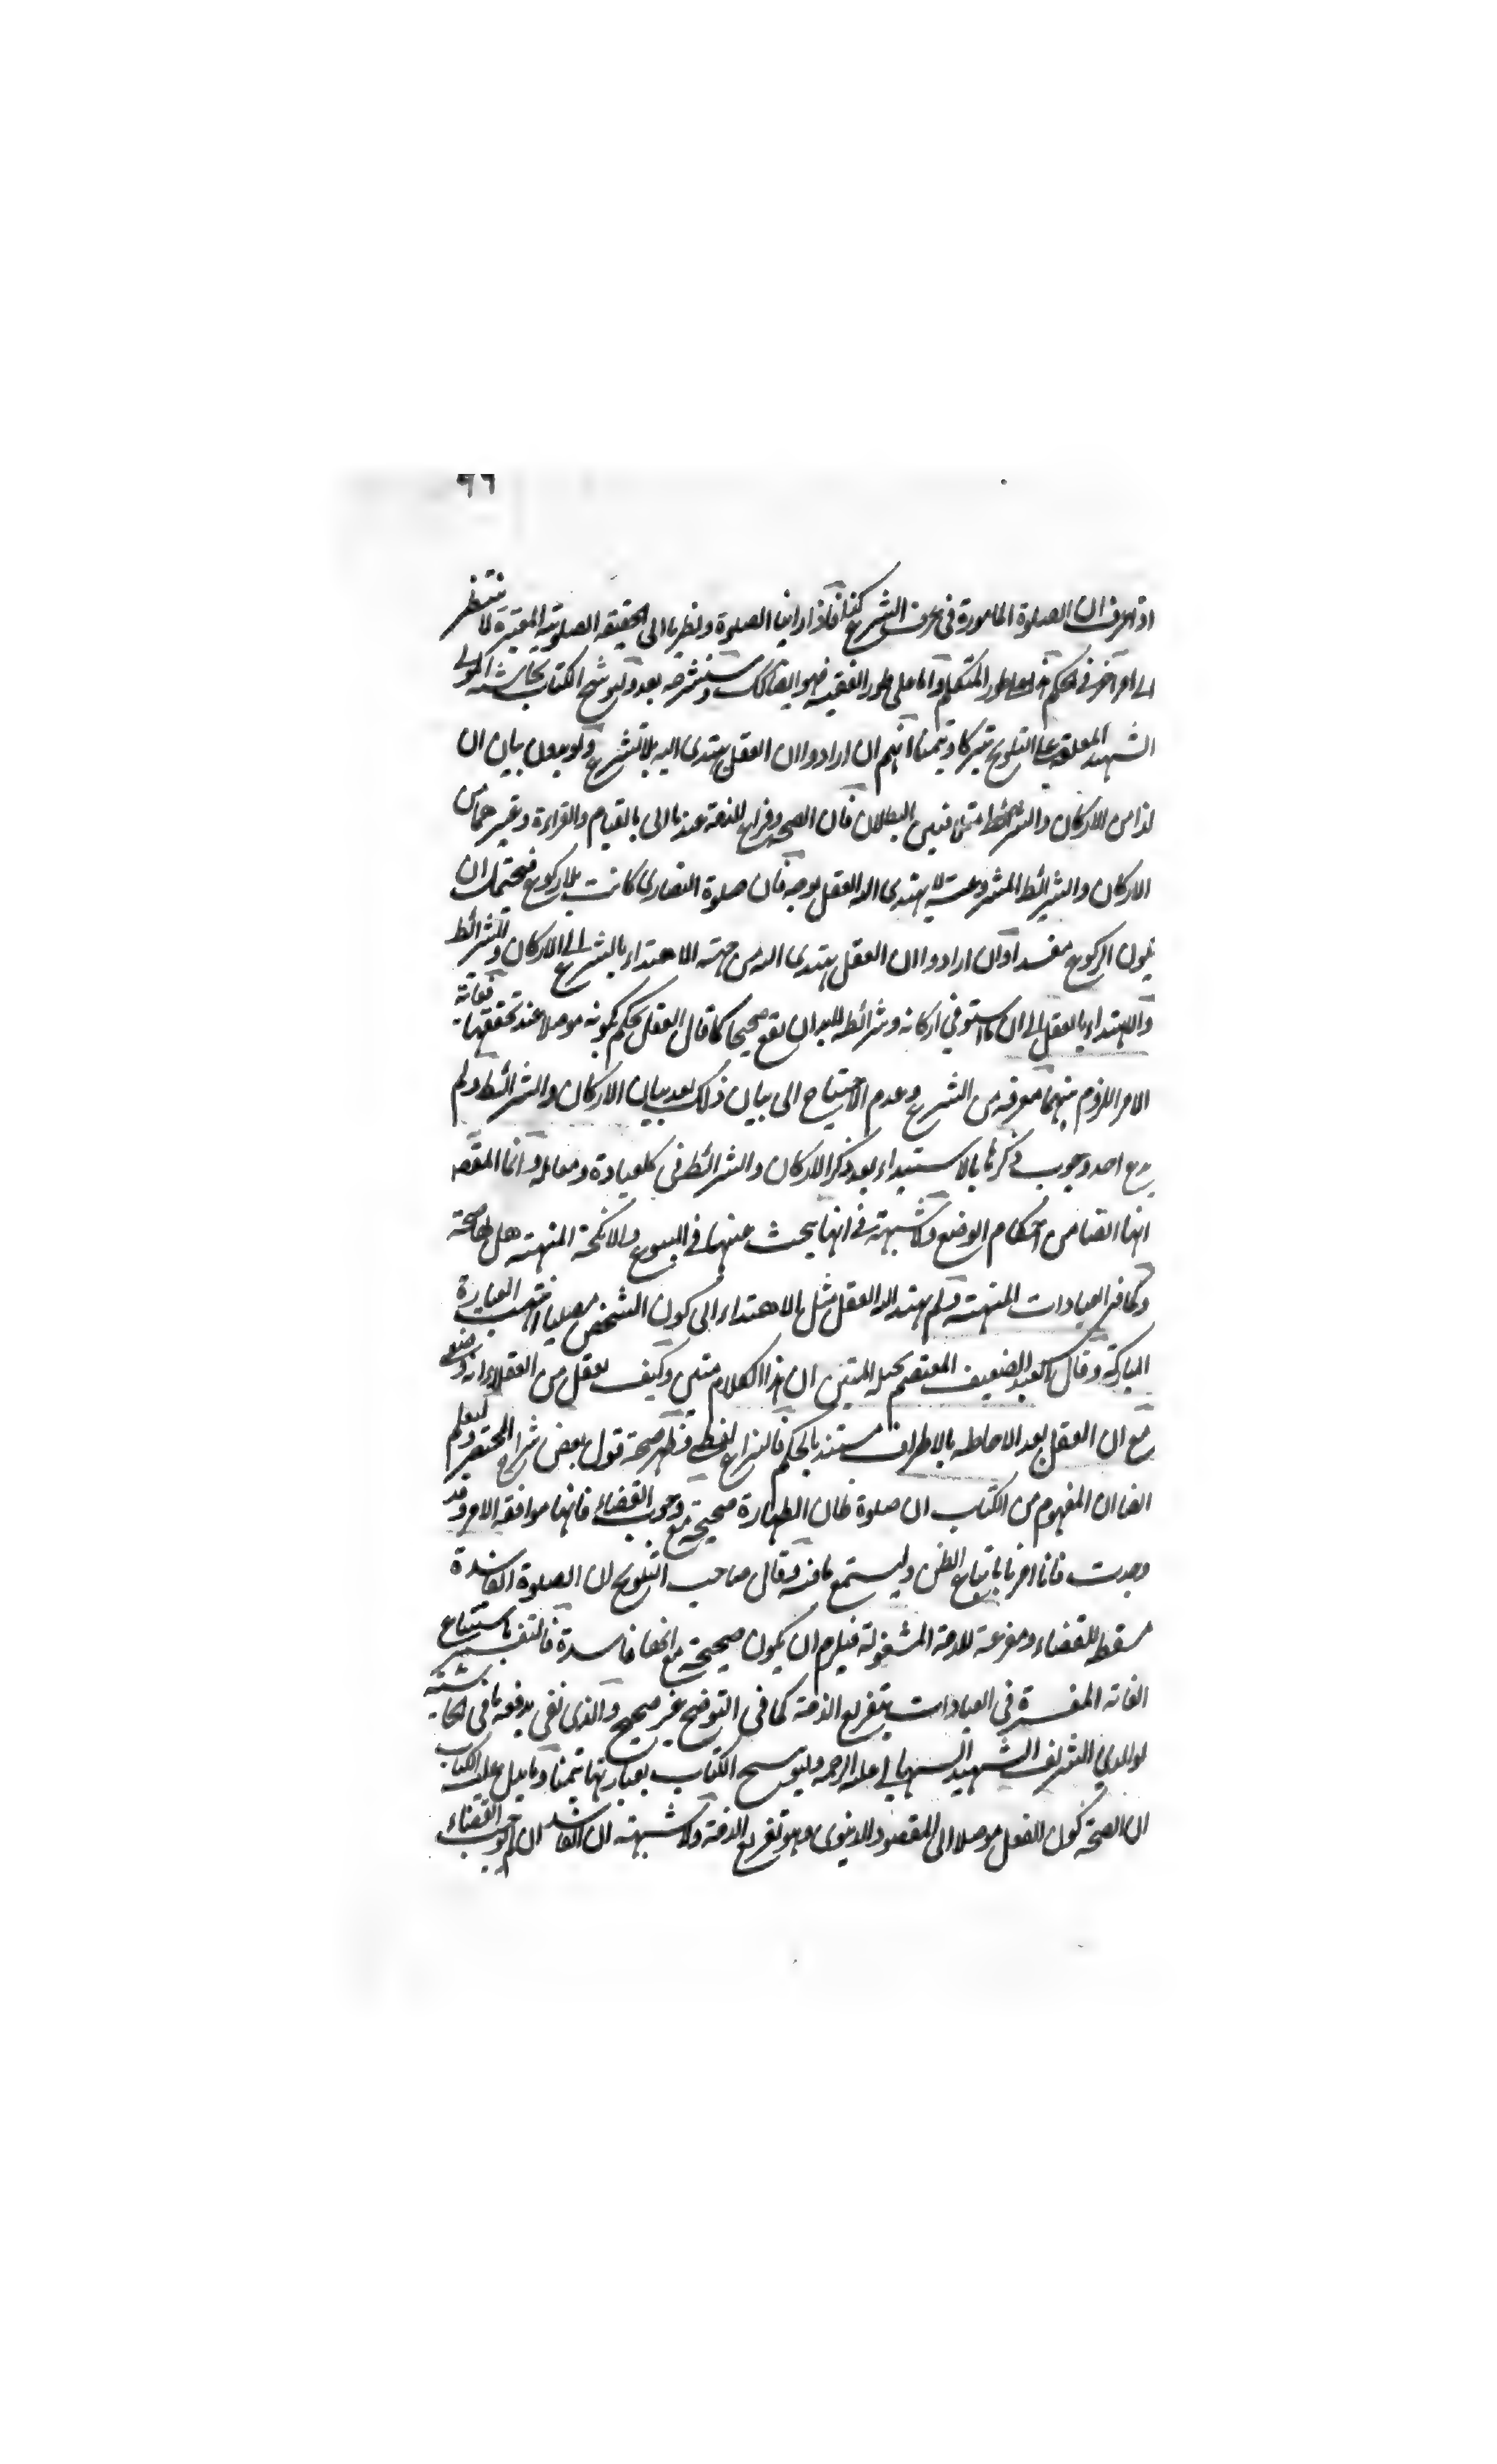 ٩٦
اذا عرف ان الصلوة المامورة فى عرف الشرع كذا فاذا راينا الصلوة ونظرنا الى الحقيقة الصلوتية المعتبرة لا ننتظر
الى امر آخر فى الحكم هذا على طور المتكلم واما على طور الفقيه فهو ايضا كذلك وسنشرحه بعد وليوشح الكتاب بحاشية المولى
الشهيد المعلقة على التلويح تبركا وتيمنا انهم ان ارادوا ان العقل يهتدى اليه بلا تشريع ولو بدون بيان ان
لذا من الاركان والشرائط فبين البطلان فان الصحة وفراغ الذمة عندنا الى بالقيام والقراءة وغيرهما من
الاركان والشرائط المشروعة لا يهتدى اليه العقل بوجه فان صلوة النصارى كانت بلا ركوع فيحتمل ان
يكون الركوع مفسدا وان ارادوا ان العقل يهتدى اليه من جهة الاهتداء بالشرع الى الاركان والشرائط
والاهتداء بالعقل الى ان ما استوفى اركانه وشرائطه لابد ان يقع صحيحا كما قال العقل يحكم بكونه موصلا عند تحققها فغاية
الامر اللزوم بينهما معرفة من الشرع وعدم الاحتياج الى بيان ذلك بعد بيان الاركان والشرائط ولم
يدع احد وجوب ذكرها بالاستبداء بعد ذكر الاركان والشرائط فى كل عبادة ومعاملة وانما المقصد
انها ايضا من احكام الوضع ولا شبهة فى انها يبحث عنها فى البيوع والانكحة المنهية هل لها صحة
وكما فى العبادات المنهية ولم يهتد اليه العقل مثل الاهتداء الى كون الشخص مصليا انتهت العبارة
المباركة وقال العبد الضعيف المعتصم بحبله المتين ان هذا الكلام متين وكيف يعقل من العقلاء انه وضعى
مع ان العقل بعد الاحاطة بالاطراف مستند بالحكم فالنزاع لفظى فظهر صحة قول بعض شراح المختصر وليعلم
ايضا ان المفهوم من الكتاب ان صلوة ظان الطهارة صحيحة مع وجوب القضاء فانها موافقة الامر وقد
وجدت فانا امرنا باتباع الظن وليستمع ما فيه وقال صاحب التلويح ان الصلوة الفاسدة
مسقطة للقضاء ومفرغة للذمة المشغولة فيلزم ان يكون صحيحة مع انها فاسدة فالتفسير باستتباع
الغاية المفسرة فى العبادات بتفريغ الذمة كما فى التوضيح غير صحيح والذى نفى يدفعه ما فى الحاشية
لوالدى الشريف الشهيد السهالى عليه الرحمة وليوشح الكتاب بعبارتها تيمنا وما يدل عليه الكتاب
ان الصحة كون الفعل موصلا الى المقصود الدنيوى وهو تفريغ الذمة ولا شبهة ان الفاسد ان لم يوجب القضاء